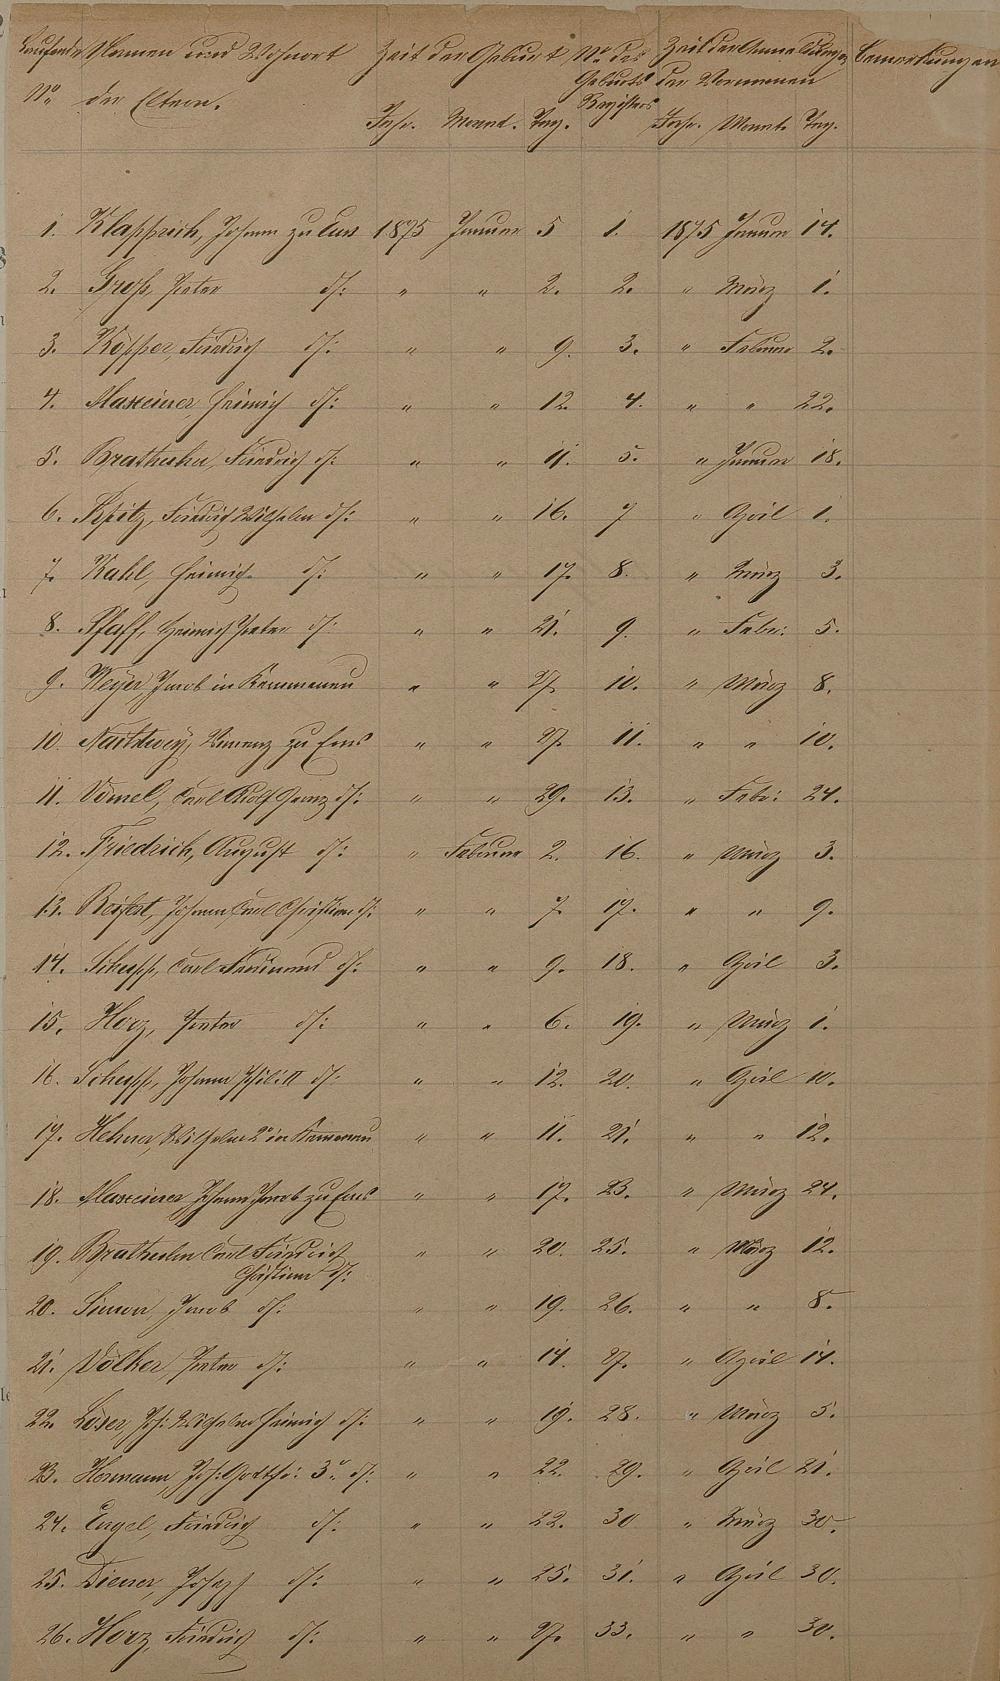 Laufende Namen und Wohnort Zeit der Geburt No des Zeit der Anmeldung Bemerkungen
No der Eltern. Geburts der Vornamen
Registers
Jahr. Monat. Tag. Jahr. Monat. Tag.
1. Klapprich, Johann zu Ems 1875 Januar 5 1. 1875 Januar 14.
2. Groß, Peter ds: " " 2. 2. " März 1.
3. Köpper, Friedrich ds: " " 9. 3. " Februar 2.
4. Maxeiner, Heinrich ds: " " 12. 4. " " 22.
5. Brathuhn, Friedrich ds: " " 11. 5. " Januar 18.
6. Spitz, Friedrich Wilhelm ds: " " 16. 7 " April 1.
7. Kahl, Heinrich ds: " " 17. 8. " März 3.
8. Pfaff, Heinrich Peter ds: " " 21. 9. " Febr: 5.
9. Meyer, Jacob in Kemmenau " " 27. 10. " März 8.
10. Nachtwey, Vincenz zu Ems " " 27. 11. " " 10.
11. Vömel, Carl Adolf Georg ds: " " 29. 13. " Febr: 24.
12. Friedrich, August ds: " Februar 2. 16. " März 3.
13. Johann Carl Christian ds: " " 7. 17. " " 9.
14. Schupp, Carl Ferdinand ds: " " 9. 18. " April 3.
15. Horz, Peter ds: " " 6. 19. " März 1.
16. Schupp, Johann Phil: II ds: " " 12. 20. " April 10.
17. Hehner, Wilhelm 2r in Kemmenau " " 11. 21. " " 12.
18. Maxeiner, Johann Jacob zu Ems " " 17. 23. " März 24.
19. Brathuhn Carl Friedrich " " 20. 25. " März 12.
Christian ds:
20. Simon, Jacob ds: " " 19. 26. " " 8.
21. Völker, Peter ds: " " 14. 27. " April 14.
22. Löser, Joh: Wilhelm Heinrich ds: " " 19. 28. " März 5.
23. Hermann, Joh: Gottfr: 3r ds: " " 22. 29. " April 21.
24. Engel, Friedrich ds: " " 22. 30 " März 30.
25. Diener, Joseph ds: " " 25. 31. " April 30.
26. Horz, Friedrich ds: " " 27. 33. " " 30.